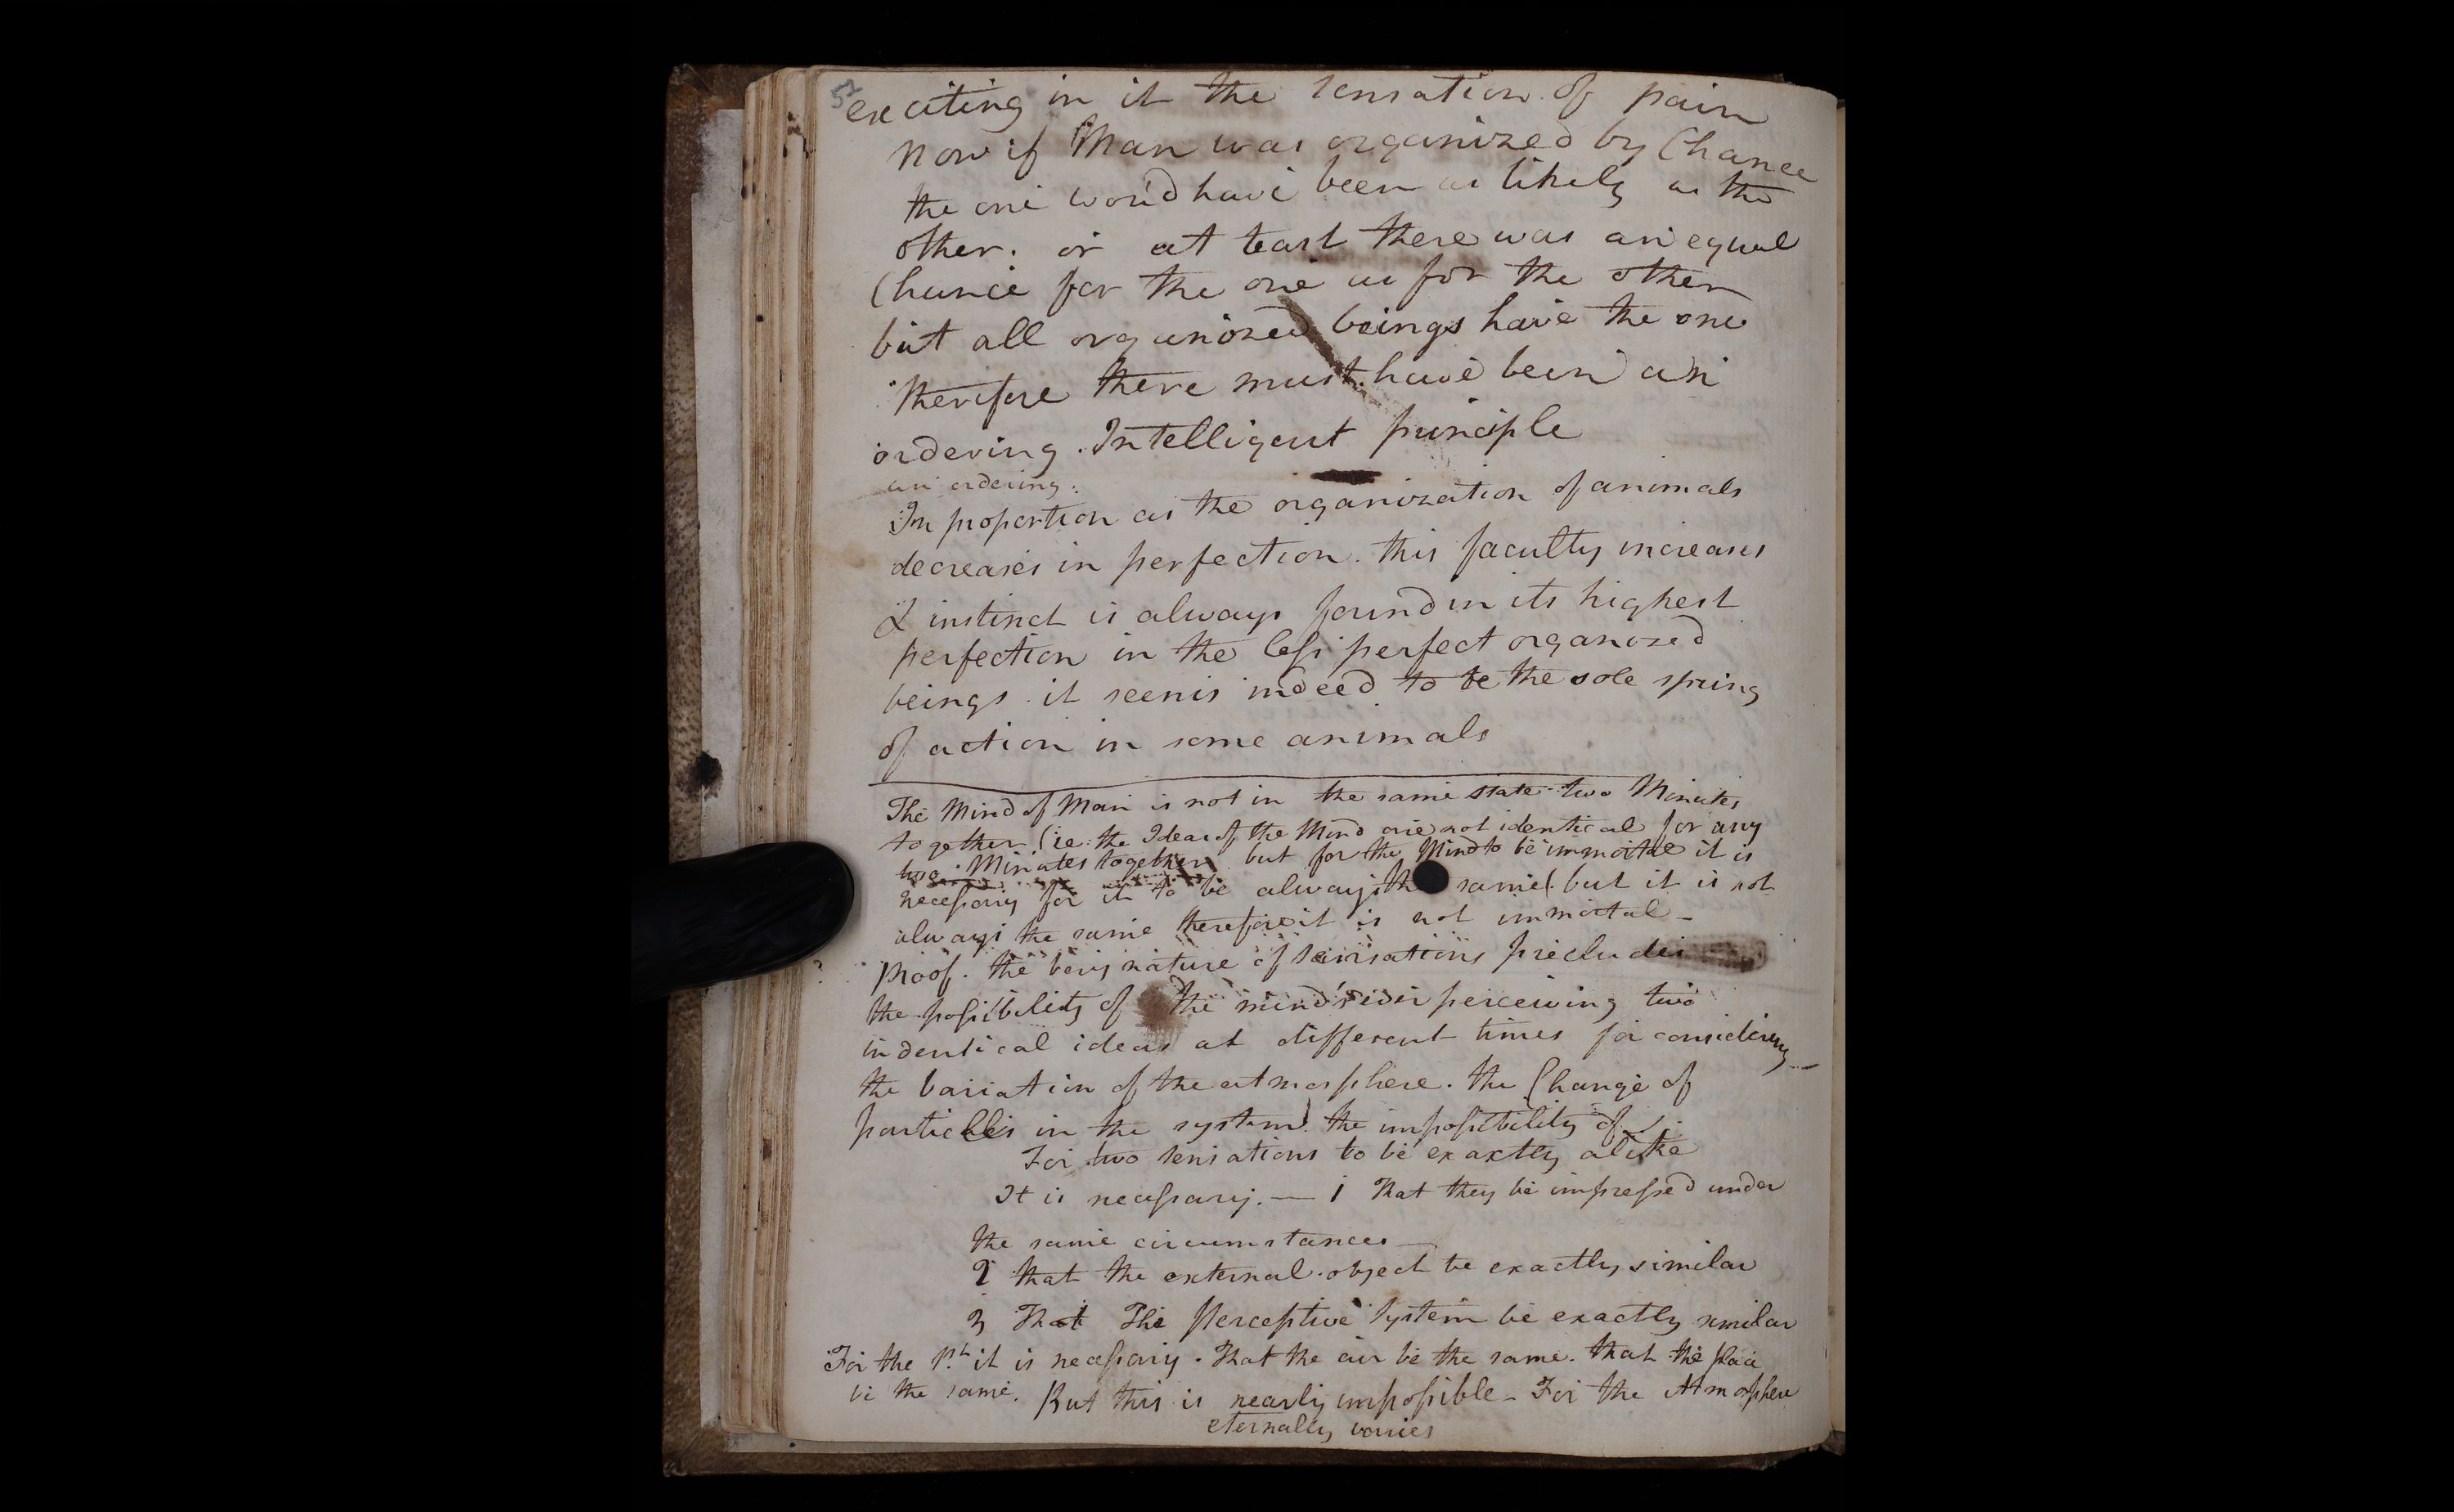 52
exciting in it the sensation of pain
Now if Man was organized by Chance
the one wou'd have been as likely as the
other. or at least there was an equal
Chance for the one as for the other
but all organized beings have the one
therefore there must have been an
ordering. Intelligent principle
an ordering.
In proportion as the organization of animals
decreases in perfection. this faculty increases
& instinct is always found in its highest
perfection in the less perfect organozed
beings. it seems indeed to be the sole spring
of action in some animals
The Mind of Man is not in the same state two Minutes
together (ie: the Ideas of the Mind are not identical for any
two Minutes together but for the Mind to be immortal it is
necessary for it to be always the same(. but it is not
always the same therefore it is not immortal -
Proof. the very nature of sensations precludes
the possibility of the mind's ever perceiving two
indentical ideas at different times for considering
the variation of the atmosphere. the Change of
particles in the system. the impossibility of
For two sensations to be exactly alike
It is necessary. — 1 That they be impressed under
the same circumstances —
2 that the external object be exactly similar
3 That The perceptive System be exactly similar
For the 1st it is necessary. That the air be the same. that the place
be the same. But this is nearly impossible - For the Atmosphere
eternally varies